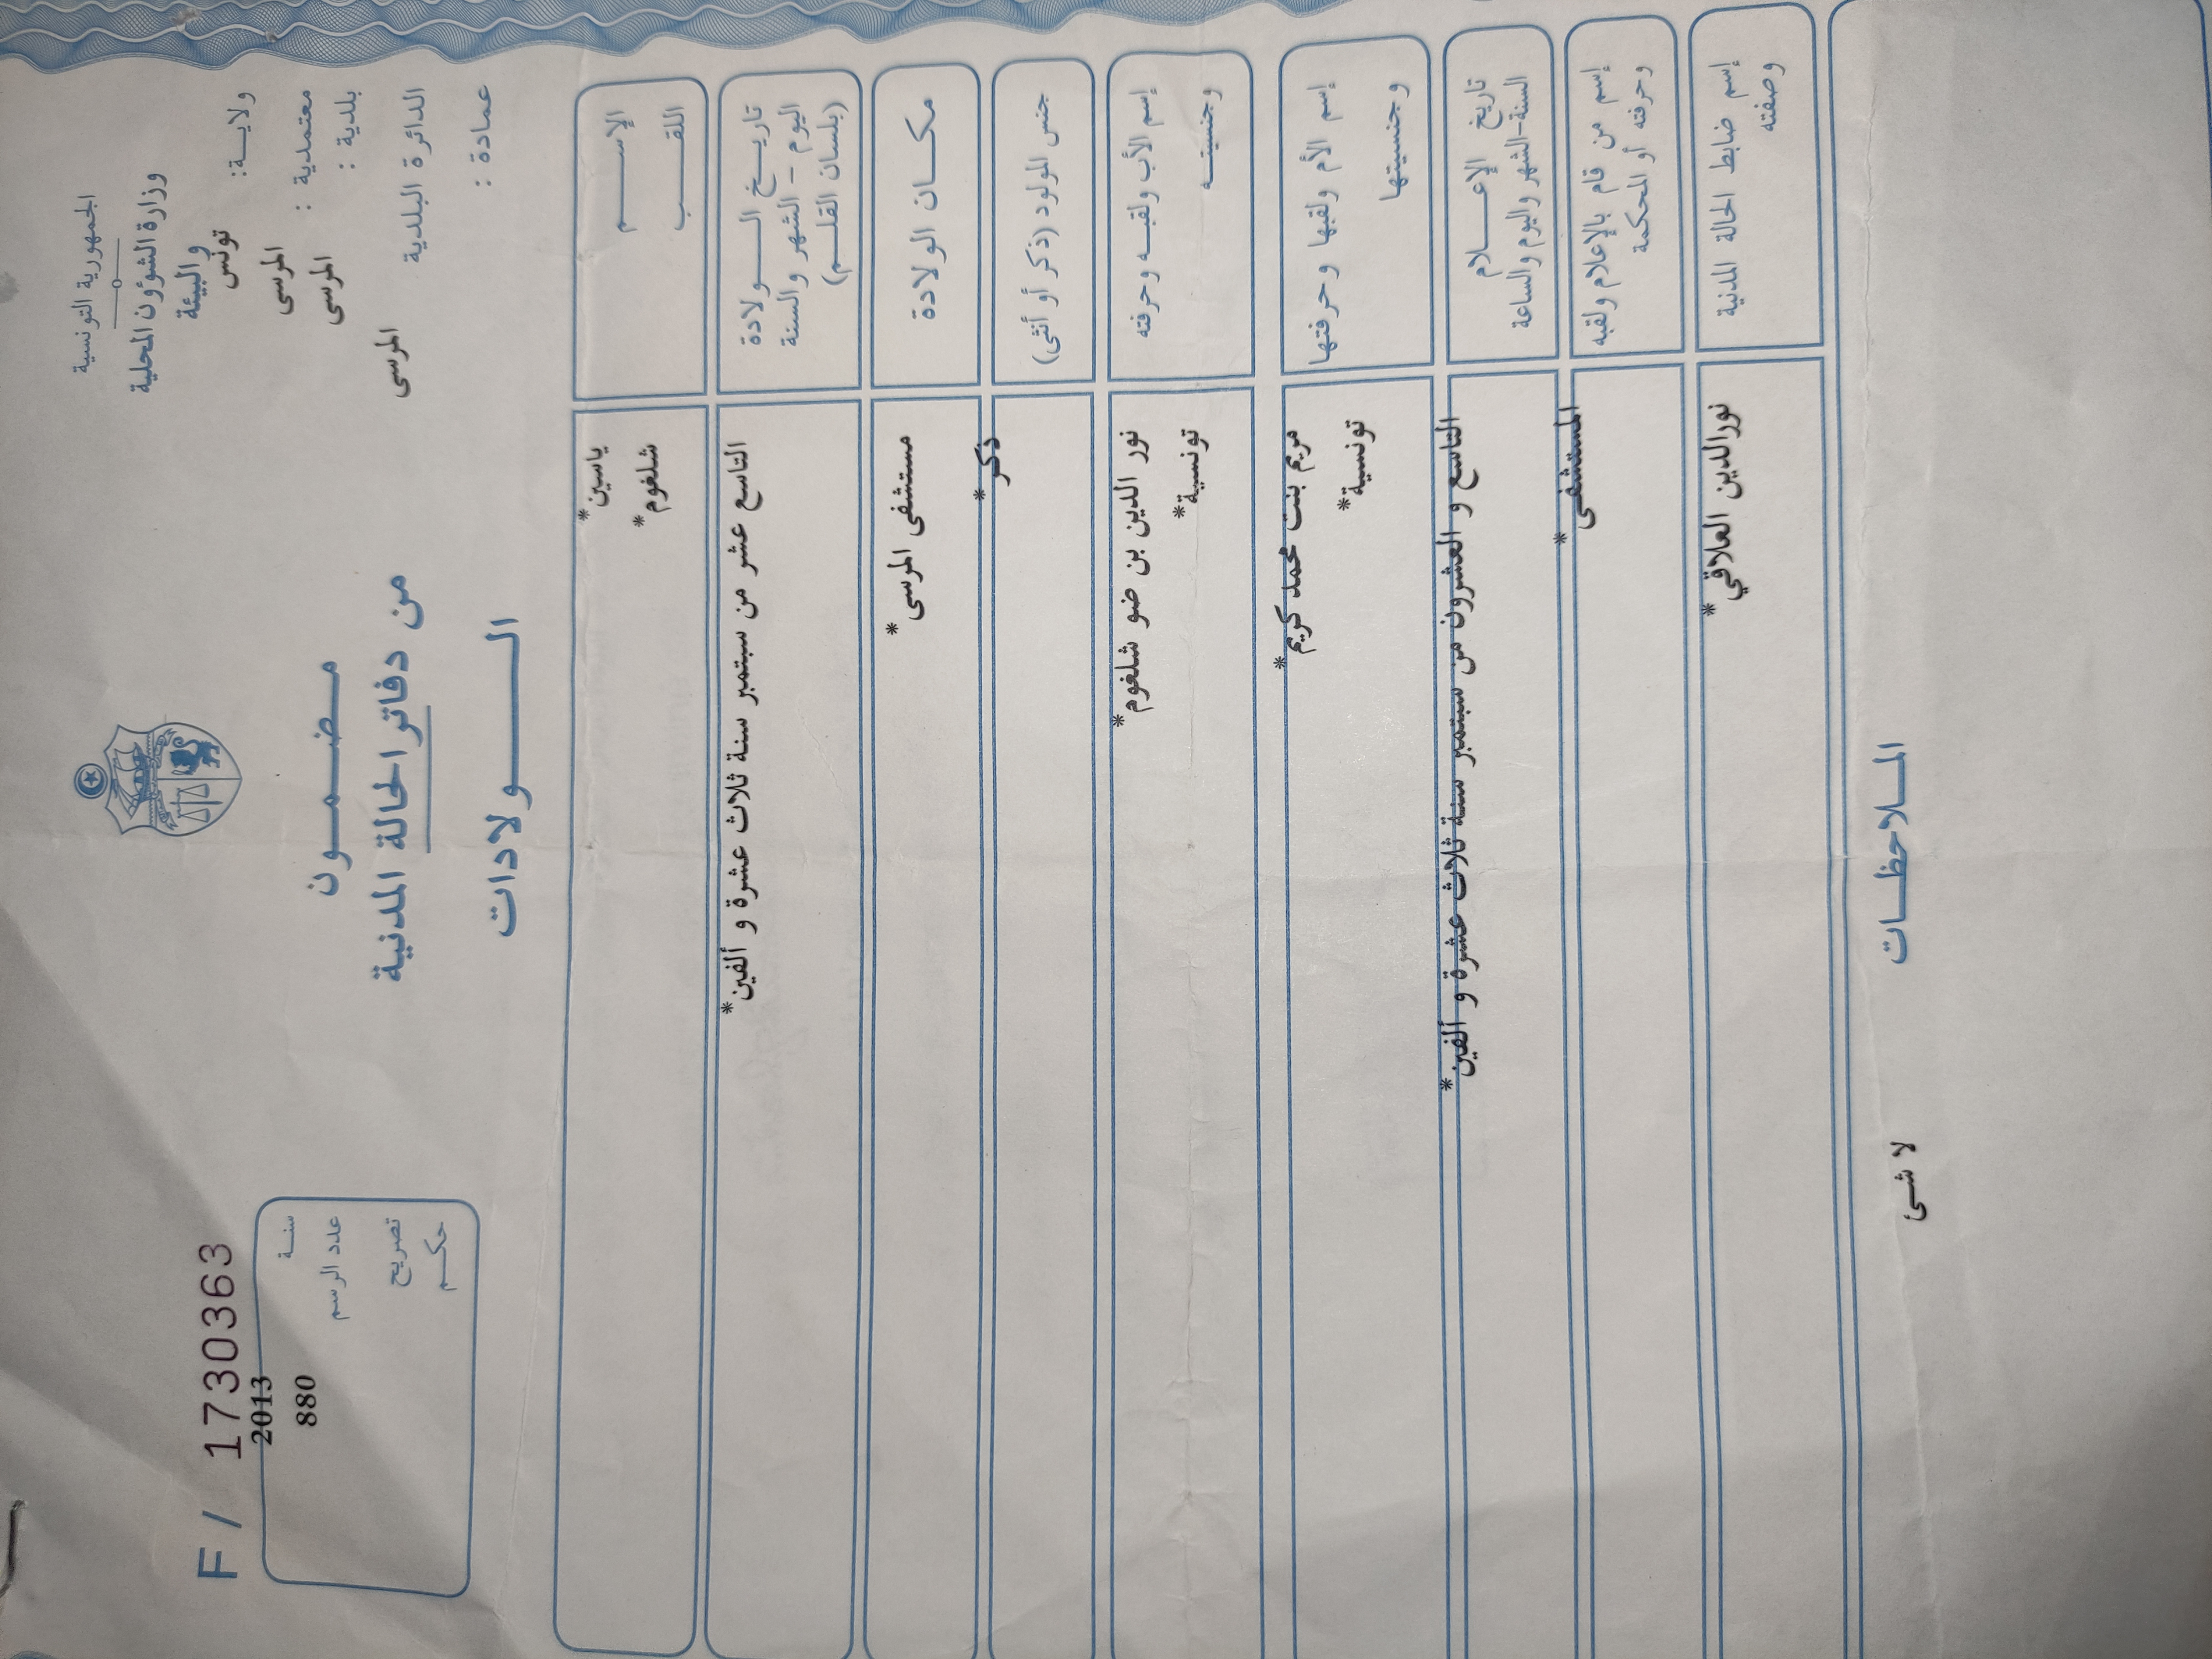 الجمهورية التونسية
وزارة الشؤون المحلية
والبيئة
ولاية: تونس
معتمدية : المرسى
بلدية : المرسى
الدائرة البلدية
المرسى
عمادة :
مضمون
من دفاتر الحالة المدنية
الولادات
F / 1730363
سنة 2013
عدد الرسم 880
تصريح
حكم
الإسم ياسين*
اللقب شلغوم*
تاريخ الولادة التاسع عشر من سبتمبر سنة ثلاث عشرة و ألفين*
اليوم - الشهر والسنة
(بلسان القلم)
مكان الولادة مستشفى المرسى*
جنس المولود (ذكر أو أنثى) ذكر*
إسم الأب ولقبه وحرفته نور الدين بن ضو شلغوم*
وجنسيته تونسية*
إسم الأم ولقبها وحرفتها مريم بنت محمد كريم*
وجنسيتها تونسية*
تاريخ الإعلام التاسع و العشرون من سبتمبر سنة ثلاث عشرة و ألفين*
السنة-الشهر واليوم والساعة
إسم من قام بالإعلام ولقبه المستشفى*
وحرفته أو المحكمة
إسم ضابط الحالة المدنية نورالدين العلاقي*
وصفته
الملاحظات
لا شئ